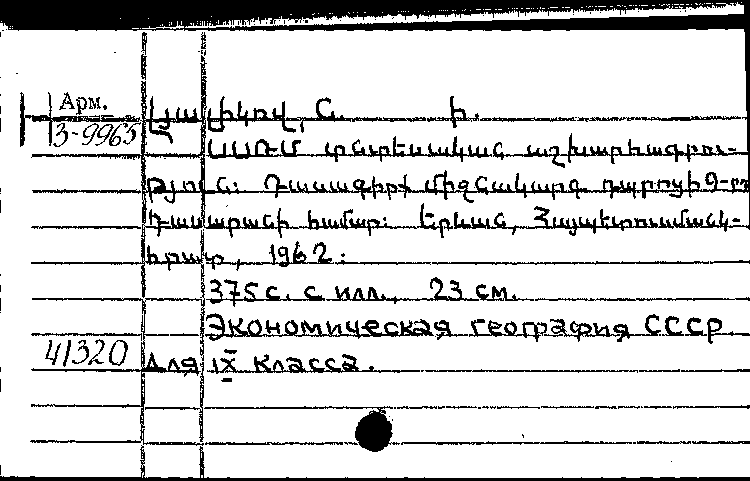 Арм.
Լյալիկով, Ն. Ի.
3-9965
ՍՍՌՄ տնտեսական աշխարհագրու-
թյուն: Դասագիրք միջնակարգ դպրոցի 9-րդ
դասարանի համար: Երևան, Հայպետուսմանկ-
հրատ, 1962:
375 с. с илл., 23 см.
Экономическая география СССР
41320 для IX класса.